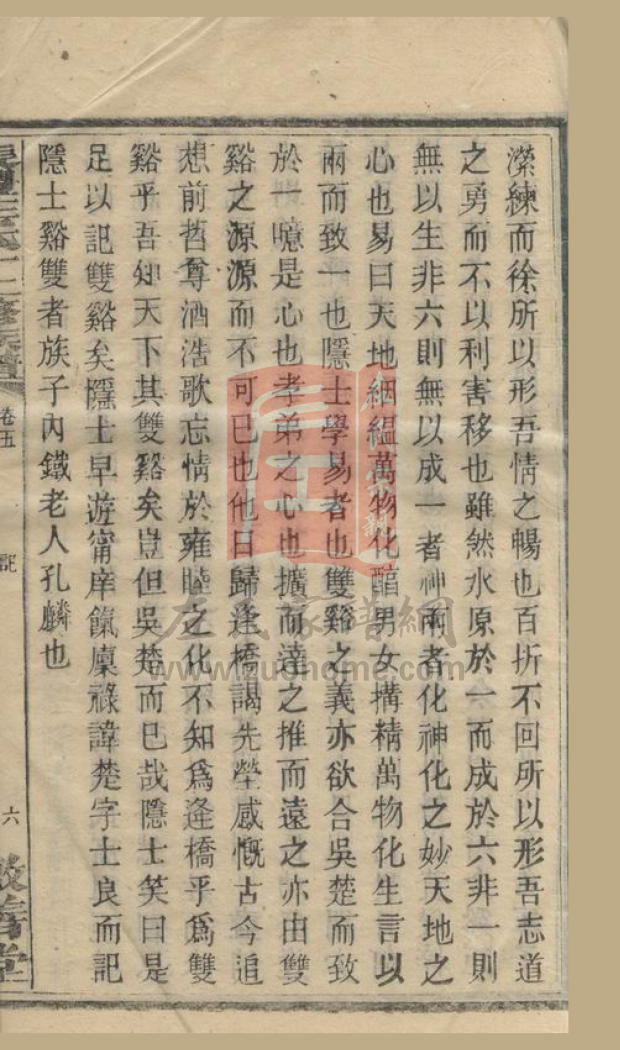 濴練而徐所以形吾情之暢也百折不回所以形吾志道
之勇而不以利害移也雖然水原於一而成於六非一則
無以生非六則無以成一者神兩者化神化之妙天地之
心也易曰天地絪縕萬物化醕男女搆精萬物化生言以
兩而致一也隱士學易者也雙谿之義亦欲合吳楚而致
於一噫是心也孝弟之心也擴而達之推而遠之亦由雙
谿之源源而不可已也他日歸逢橋謁先塋感慨古今追
想前哲尊酒浩歌忘情於雍睦之化不知爲逢橋乎爲雙
谿乎吾知天下其雙谿矣豈但吳楚而已哉隱士笑曰是
足以記雙谿矣隱士早遊甯庠餼廩祿諱楚字士良而記
隱士谿雙者族子內鐵老人孔麟也
卷五
記
六
敦善堂
左氏家譜網
www.zuohome.com